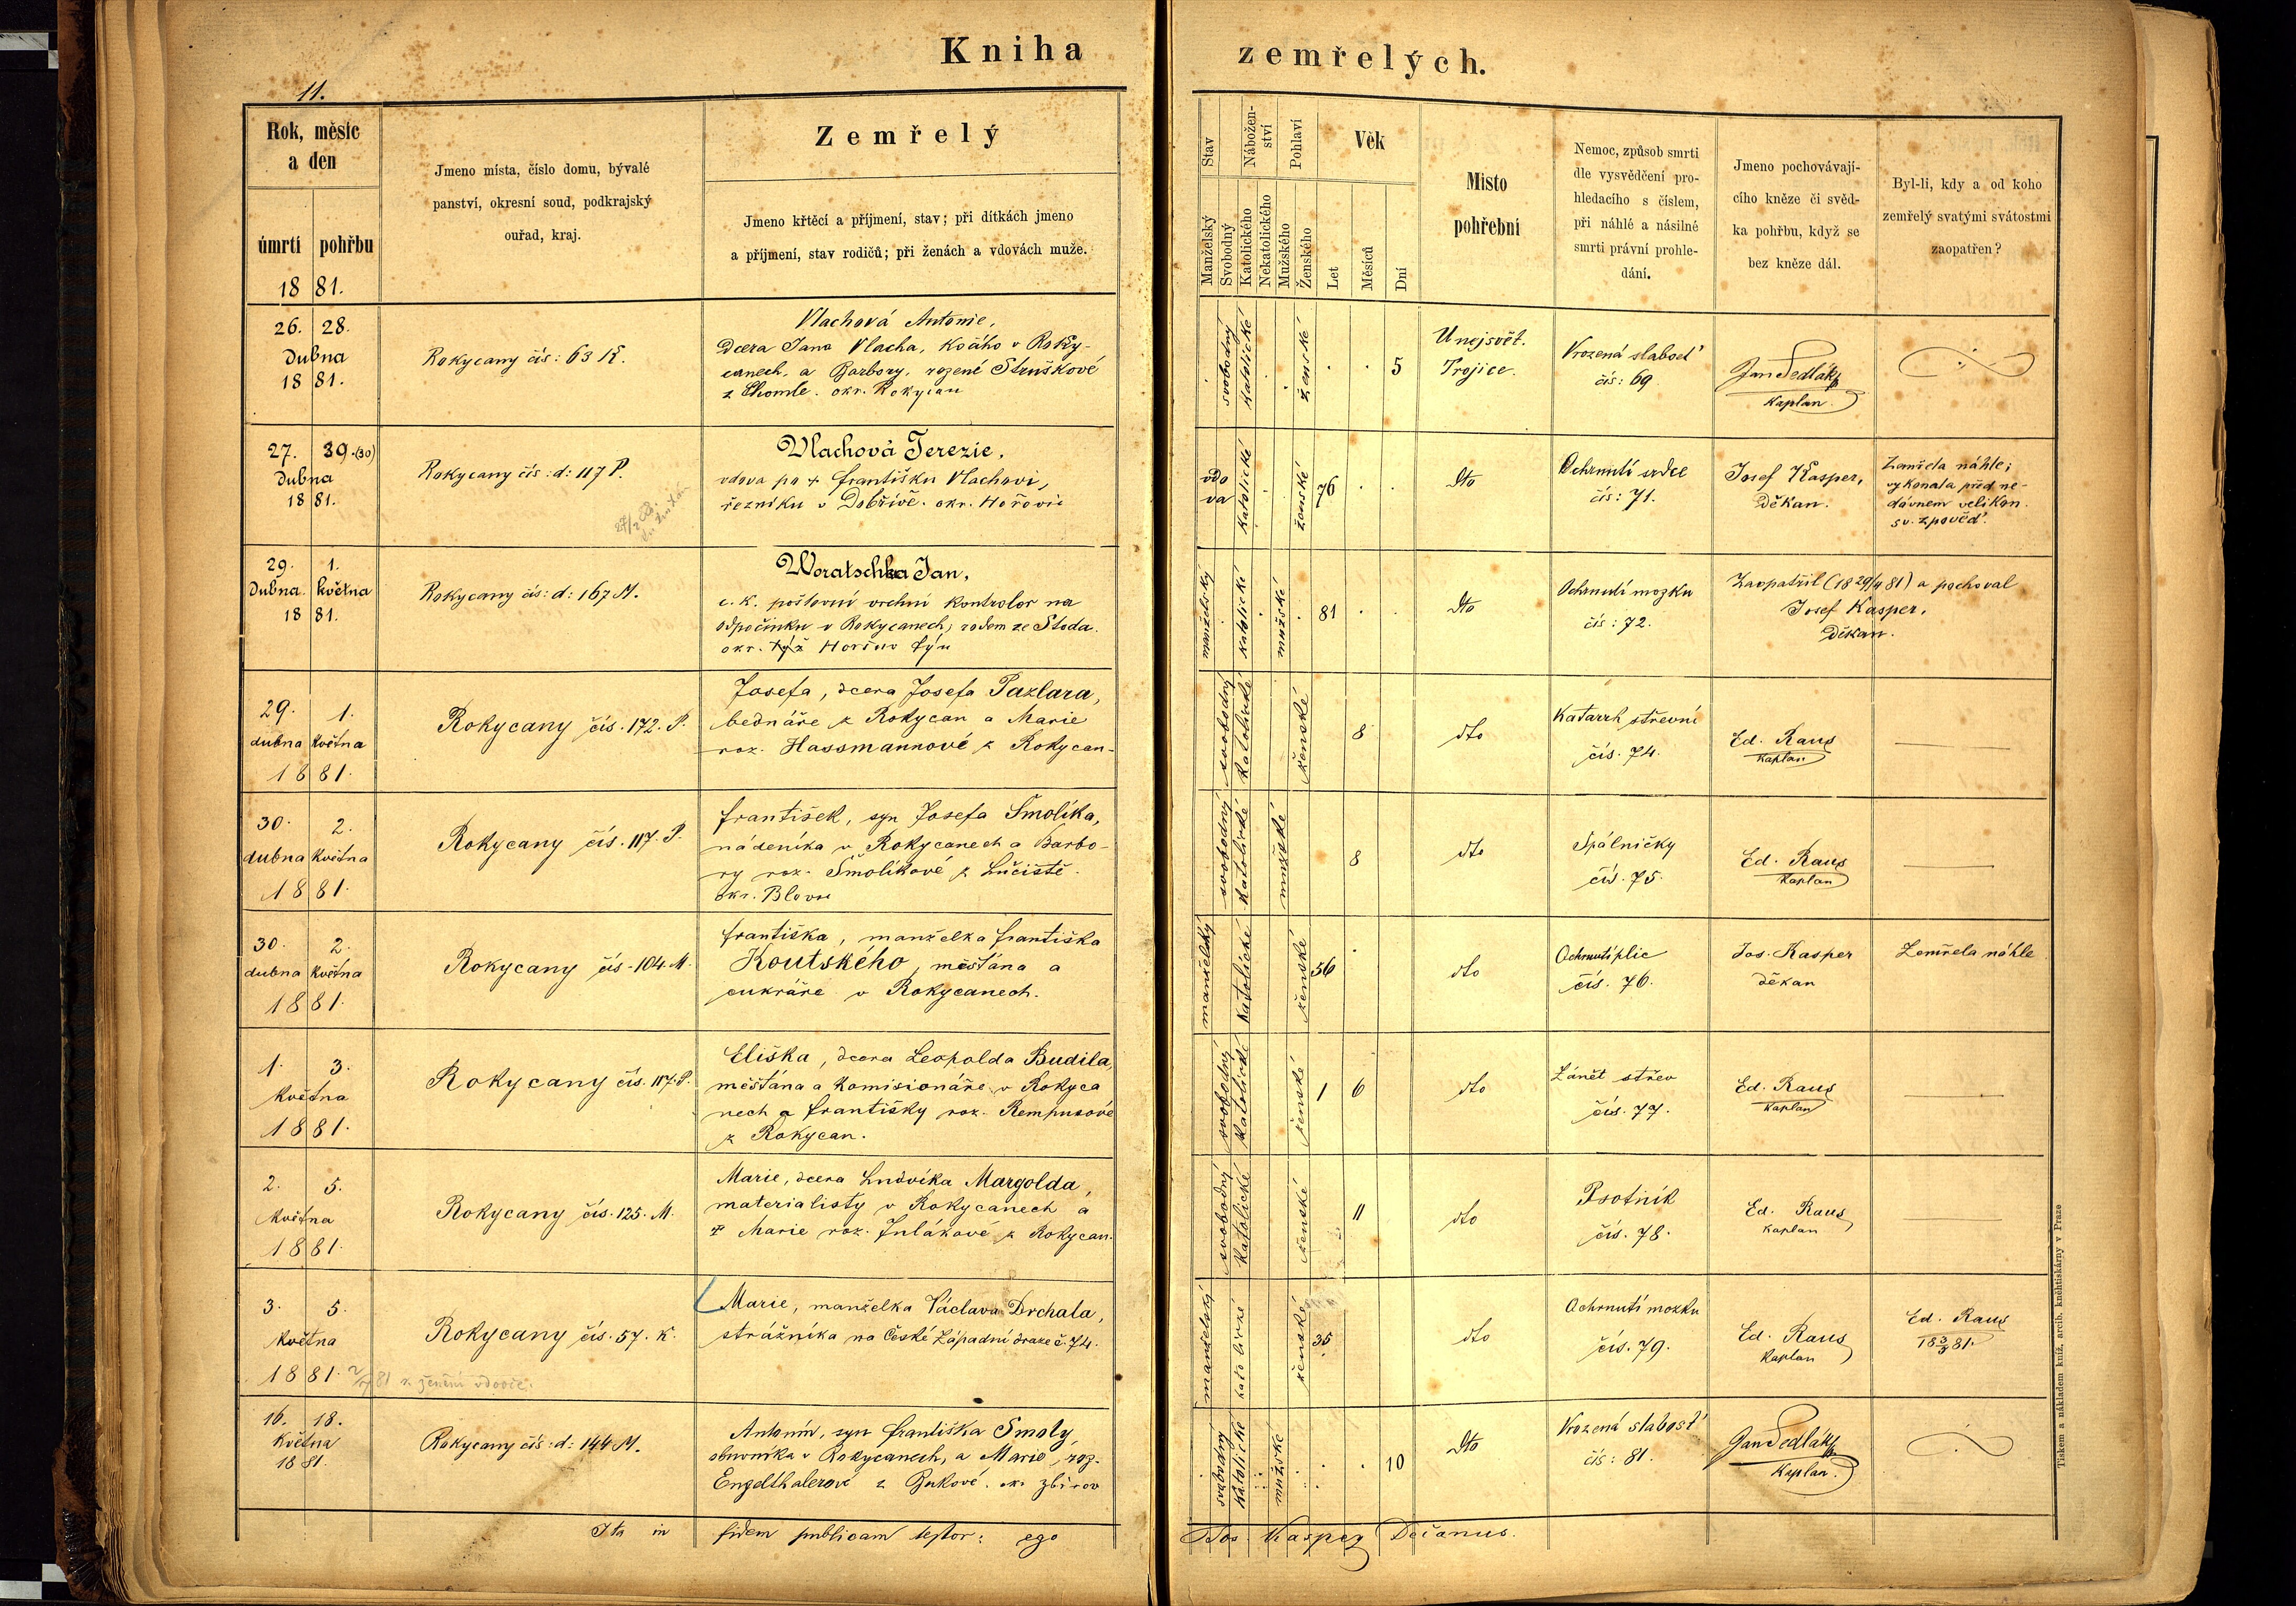 Kniha zemřelých.
11.
Rok, měsíc
a den
úmrtí pohřbu
18 81.
Jmeno místa, číslo domu, bývalé
panství, okresní soud, podkrajský
ouřad, kraj.
Zemřelý
Jmeno křtěcí a příjmení, stav; při dítkách jmeno
a příjmení, stav rodičů; při ženách a vdovách muže.
Stav
Manželský
Svobodný
Nábožen-
ství
Katolického
Nekatolického
Pohlaví
Mužského
Ženského
Věk
Let
Měsíců
Dní
Místo
pohřební
Nemoc, způsob smrti
dle vysvědčení pro-
hledacího s číslem,
při náhlé a násilné
smrti právní prohle-
dání.
Jmeno pochovávají-
cího kněze či svěd-
ka pohřbu, když se
bez kněze dál.
Byl-li, kdy a od koho
zemřelý svatými svátostmi
zaopatřen?
26. 28.
Dubna
18 81.
Rokycany čís: 63 K.
Vlachová Antonie,
Dcera Jana Vlacha, kočího v Roky-
canech, a Barbory, rozené Struškové
z Chomle. okr. Rokycan
svobodný
katolické
ženské
5
U nejsvět.
Trojice.
Vrozená slabosť
čís: 69
Jan Sedlák
Kaplan.
27. 39. (30)
Dubna
18 81.
Rokycany čís: d: 117 P.
Vlachová Terezie,
vdova po + františku Vlachovi,
řezníku v Dobřívě. okr. Hořovic
vdo
va
katolické
ženské
76
dto
Ochrnutí srdce
čís: 71.
Josef Kasper,
Děkan.
Zemřela náhle;
vykonala před ne-
dávnem velikon.
sv. zpověď.
29. 1.
Dubna. května
18 81.
Rokycany čís: d: 167 M.
Woratschka Jan,
c. k. poštovní vrchní kontrolor na
odpočinku v Rokycanech, rodem ze Stoda.
okr. týž Horšův Týn
manželský
katolické
mužské
81
dto
Ochrnutí mozku
čís: 72.
Zaopatřil (18 29/4 81) a pochoval
Josef Kasper,
Děkan.
29. 1.
dubna Května
18 81.
Rokycany čís. 172. P.
Josefa, dcera Josefa Pazlara,
bednáře z Rokycan a Marie
roz. Hassmannové z Rokycan-
svobodný
katolické
ženské
8
dto
Katarrh střevní
čís. 74.
Ed. Raus
kaplan
30. 2.
dubna Května
18 81.
Rokycany čís. 117. P.
František, syn Josefa Šmolíka,
nádeníka v Rokycanech a Barbo-
ry roz. Šmolíkové z Lučiště.
okr. Blovic
svobodný
katolické
mužské
8
dto
Spálničky
čís. 75.
Ed. Raus
Kaplan
30. 2.
dubna Května
18 81.
Rokycany čís. 104. M.
Františka, manželka Františka
Koutského, měšťána a
cukráře v Rokycanech.
manželský
katolické
ženské
56
dto
Ochrnutí plic
čís. 76.
Jos. Kasper
děkan
Zemřela náhle
1. 3.
Května
18 81.
Rokycany čís. 117. P.
Eliška, dcera Leopolda Budila,
měšťána a komisionáře v Rokyca
nech a Františky roz. Rempusové
z Rokycan.
svobodný
katolické
ženské
1 6
dto
Zánět střev
čís. 77.
Ed. Raus
Kaplan
2. 5.
Května
18 81.
Rokycany čís. 125. M.
Marie, dcera Ludvíka Margolda,
materialisty v Rokycanech a
Marie roz. Julákové z Rokycan.
svobodný
katolické
ženské
11
dto
Psotník
čís. 78.
Ed. Raus
Kaplan
3. 5.
Května
18 81.
Rokycany čís. 57. K.
Marie, manželka Václava Drchala,
strážníka na České západní dráze č. 74.
manželský
katolické
ženské
35
dto
Ochrnutí mozku
čís. 79.
Ed. Raus
Kaplan
Ed. Raus
18 3/5 81.
16. 18.
Května
18 81.
Rokycany čís: d: 144 M.
Antonín, syn Františka Smoly,
obuvníka v Rokycanech, a Marie, roz.
Engelthalerové z Bukové. ok. Zbirov
svobodný
katolické
mužské
10
dto
Vrozená slabosť
čís: 81.
Jan Sedlák
Kaplan.
Ita in fidem publicam testor: ego Jos. Kasper Decanus.
Tiskem a nákladem kníž. arcib. knihtiskárny v Praze